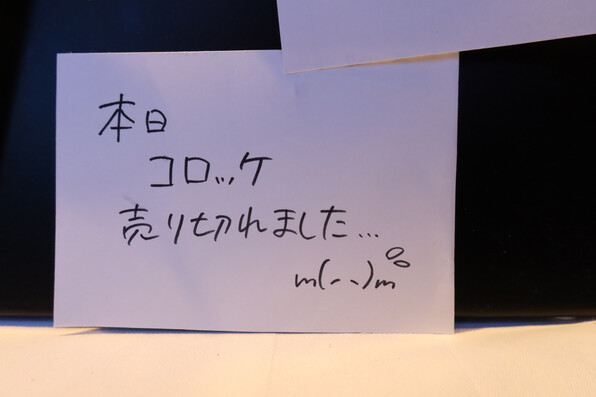 本日
コロッケ
売り切れました...
m(--)m